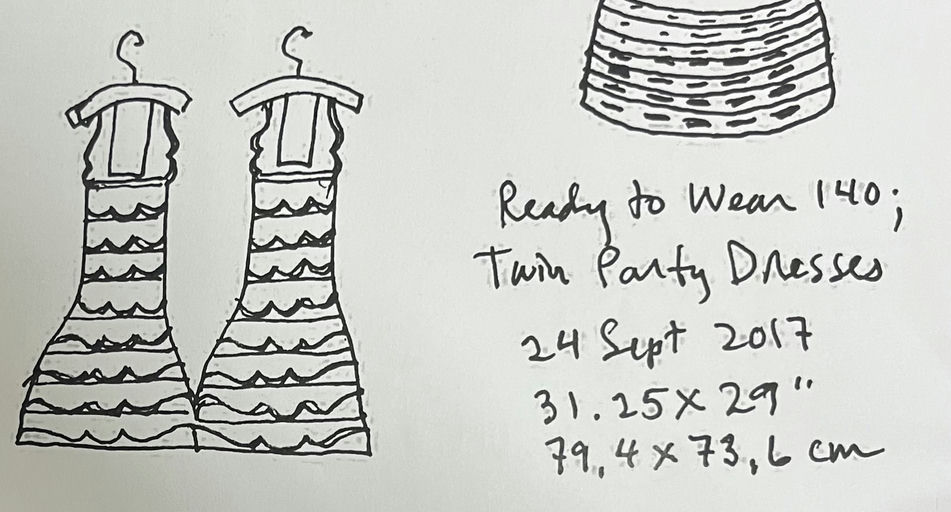 Ready to Wear 140;
Twin Party Dresses
24 Sept 2017
31.25 x 29"
79,4 x 73,6 cm